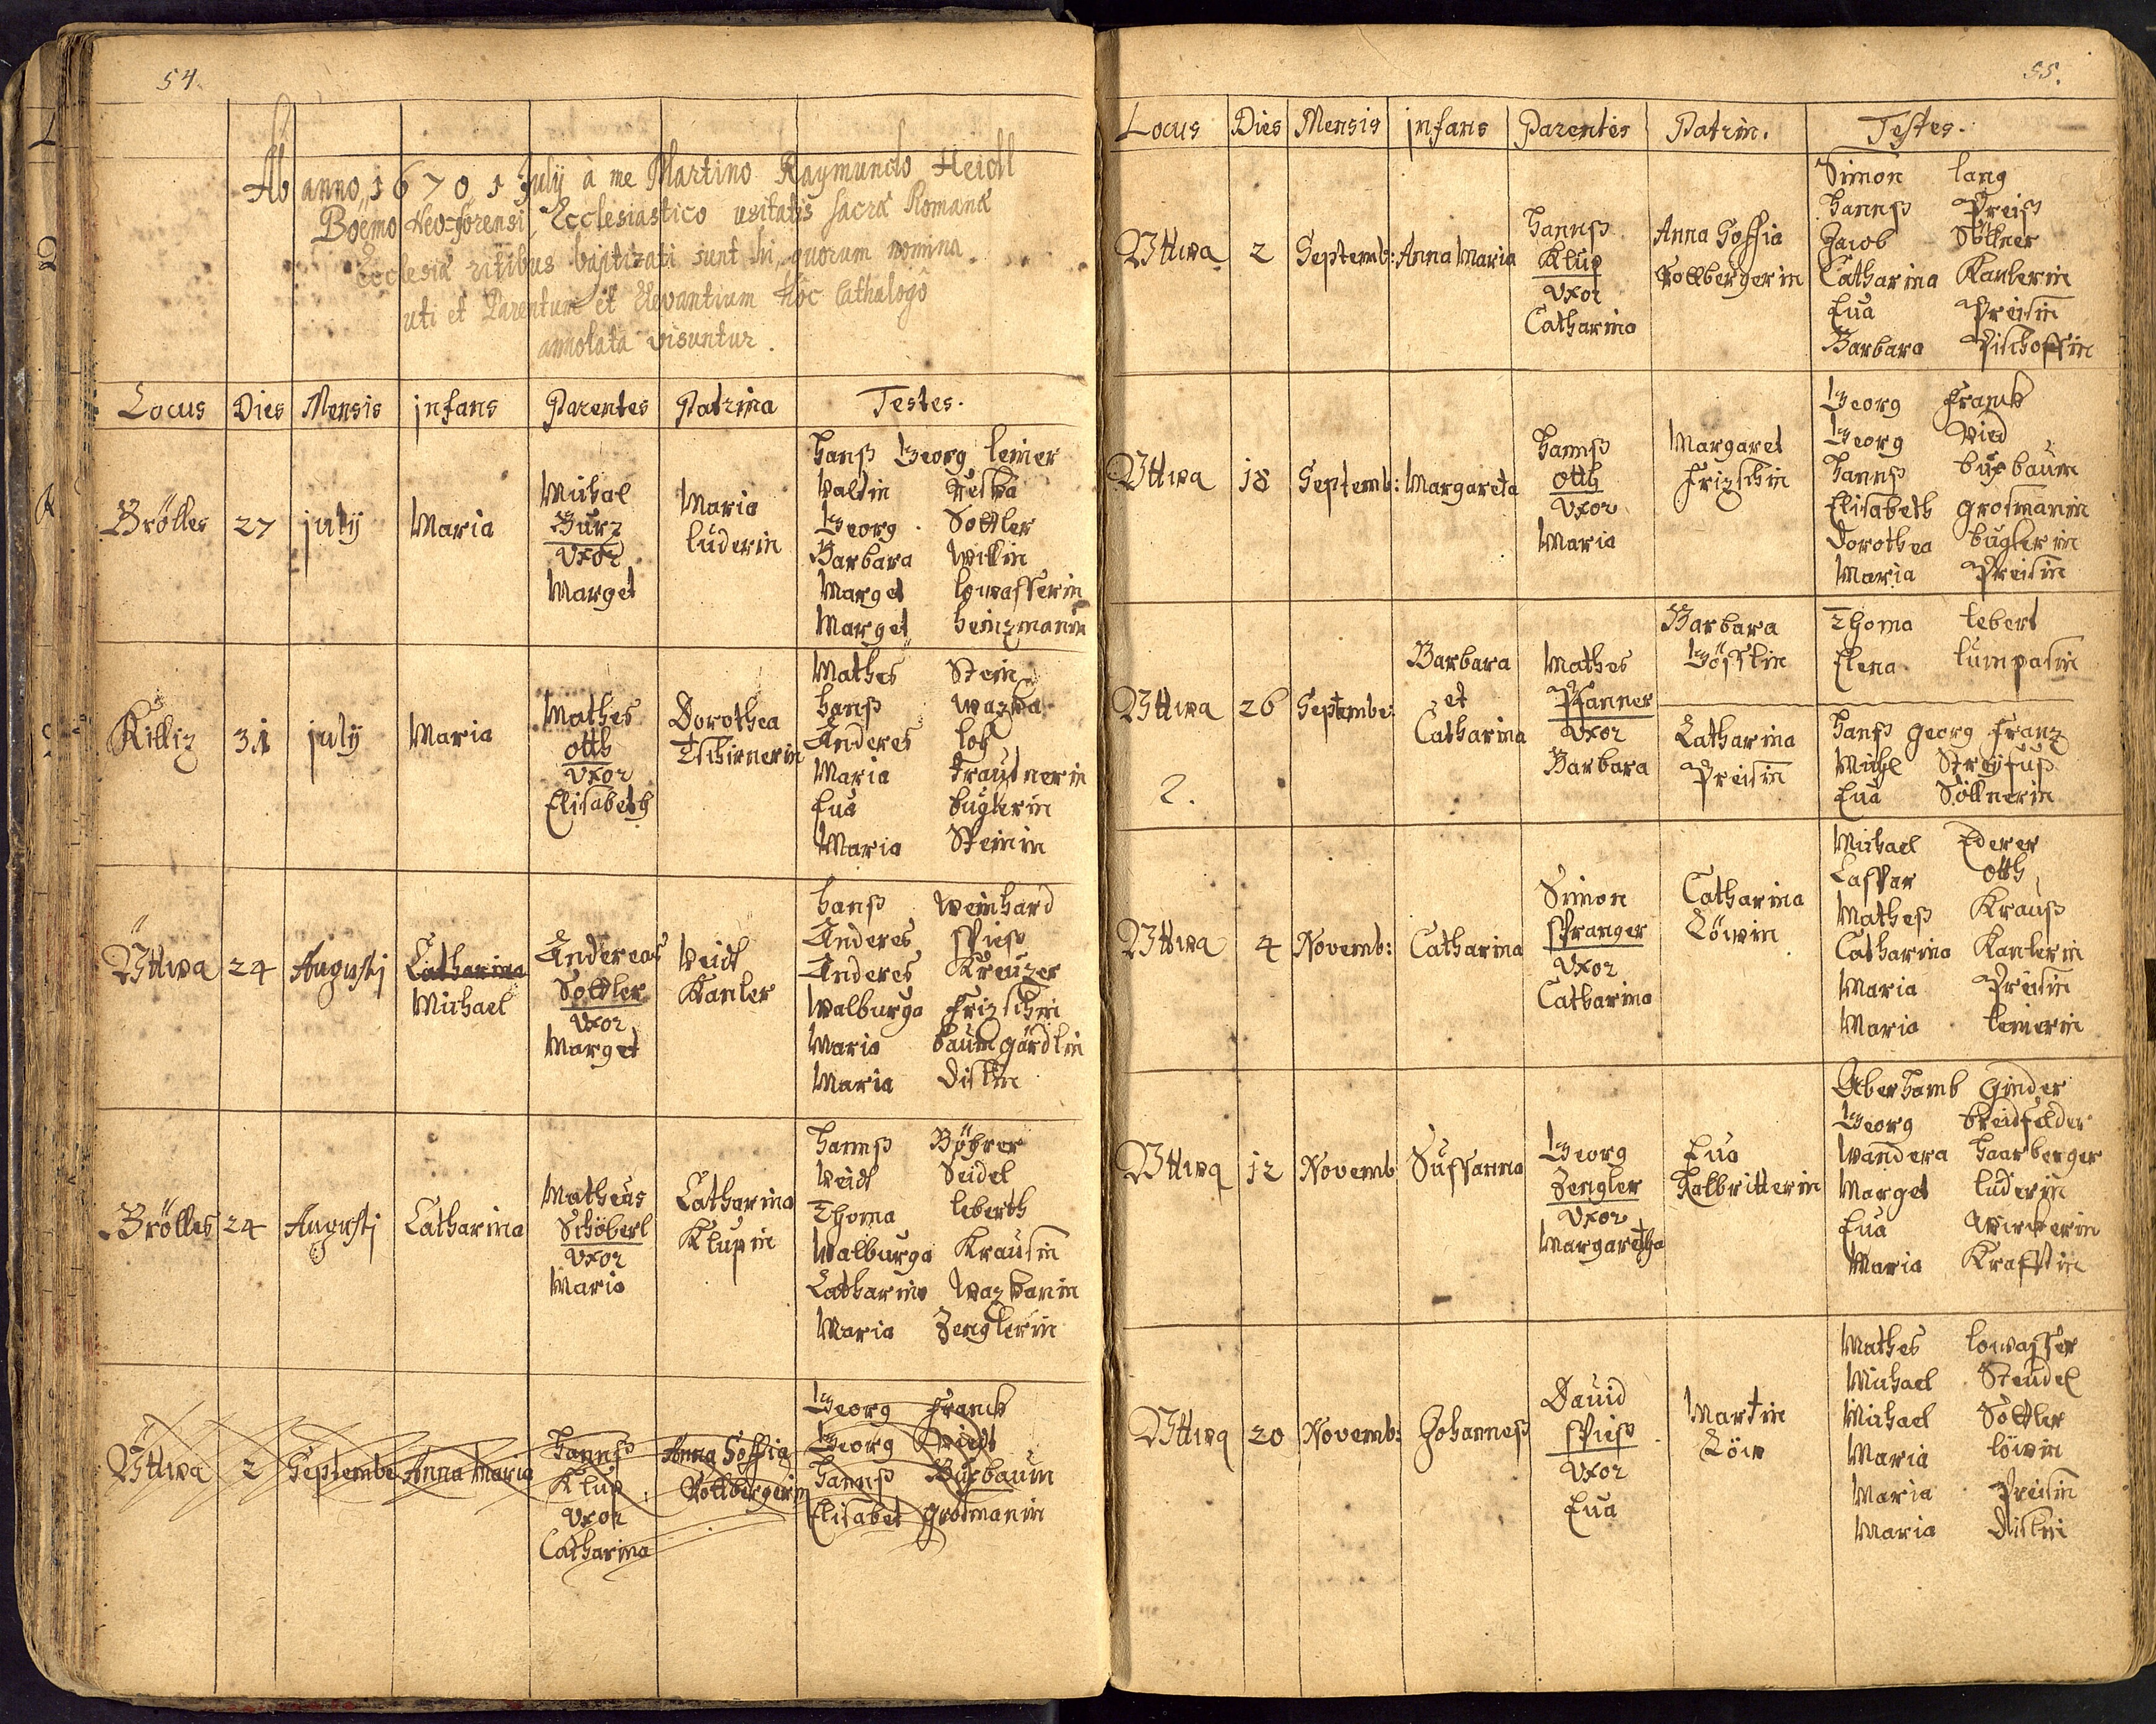 54.
Ab anno 1670 1 Julÿ à me Martino Raymundo Heidl
Boëmo Neo-forensi, Ecclesiastico usitatis sacræ Romanæ
Ecclesiæ ritibus baptizati sunt hi, quorum nomina
uti et Parentum et Elevantium hôc Cathalogô
annotata visuntur.
Locus Dies Mensis jnfans Parentes Patrina Testes.
Brölles 27 julÿ Maria
Michal
Burz
Vxor
Marget
Maria
Luderin
Hanß Georg Leiner
Valtin
Georg Sottler
Barbara Willin
Marget Lowasserin
Marget Heinzmanin
Killiz 31 julÿ Maria
Mathes
Otth
Vxor
Elisabeth
Dorothea
Tschirnerin
Mathes Stein
Hanß Wazka
Anderes
Maria Trautnerin
Eua Buglerin
Maria Steinin
Vttwa 24 Augustj
Catharina
Michael
Andereas
Sottler
Vxor
Marget
Veidt
Kanler
Hanß Weinhard
Anderes Spieß
Anderes Kreuzer
Walburga Frizschin
Maria Baumgärdlin
Maria Distlin
Brölles 24 Augustj Catharina
Matheus
Schöberl
Vxor
Maria
Catharina
Klupin
Hannß Böhrer
Veidt Seidel
Thoma Leberth
Walburga Krausin
Catharina Wazkanin
Maria Zenglerin
Vttwa 2 Septembe Anna Maria
Hannß
Klup
Vxor
Catharina
Anna Soffia
Rollbergerin
Georg Franck
Georg Viedt
Hannß Buxbaum
Elisabet Grosmanin
55.
Locus Dies Mensis jnfans Parentes Patrin. Testes.
Vttwa 2 Septemb: Anna Maria
Hannß
Klup
Vxor
Catharina
Anna Soffia
Rollbergerin
Simon Lang
Hannß Preiß
Jacob Söllner
Catharina Kanlerin
Eua Preisin
Barbara Pischoffin
Vttwa 18 Septemb: Margareta
Hannß
Otth
Vxor
Maria
Margaret
Frizschin
Georg Franck
Georg Vied
Hannß Buxbaum
Elisabeth Grosmanin
Dorothea Buglerin
Maria Preisin
Vttwa 26 Septembe:
2.
Barbara
et
Catharina
Mathes
Pfanner
Vxor
Barbara
Barbara
Gösslin
Thoma Lebert
Elena Lumpasin
Catharina
Preisin
Hanß Georg Franz
Michl Streÿfuß
Eua Söllnerin
Vttwa 4 Novemb: Catharina
Simon
Spranger
Vxor
Catharina
Catharina
Löwin
Michael Ederer
Caspar Otth
Matheß Krauß
Catharina Kanlerin
Maria Preisin
Maria Leinerin
Vttwa 12 Novemb Sussanna
Georg
Zengler
Vxor
Margaretha
Eua
Kalbritterin
Aberhamb Ginder
Georg Breidfelder
Wandera Haarberger
Marget Luderin
Eua Wirkerin
Maria Krafftin
Vttwa 20 Novemb: Johanneß
Dauid
Spieß
Vxor
Eua
Martin
Löw
Mathes Lowasser
Michael Steudel
Michael Sottler
Maria Löwin
Maria Preisin
Maria Distlin